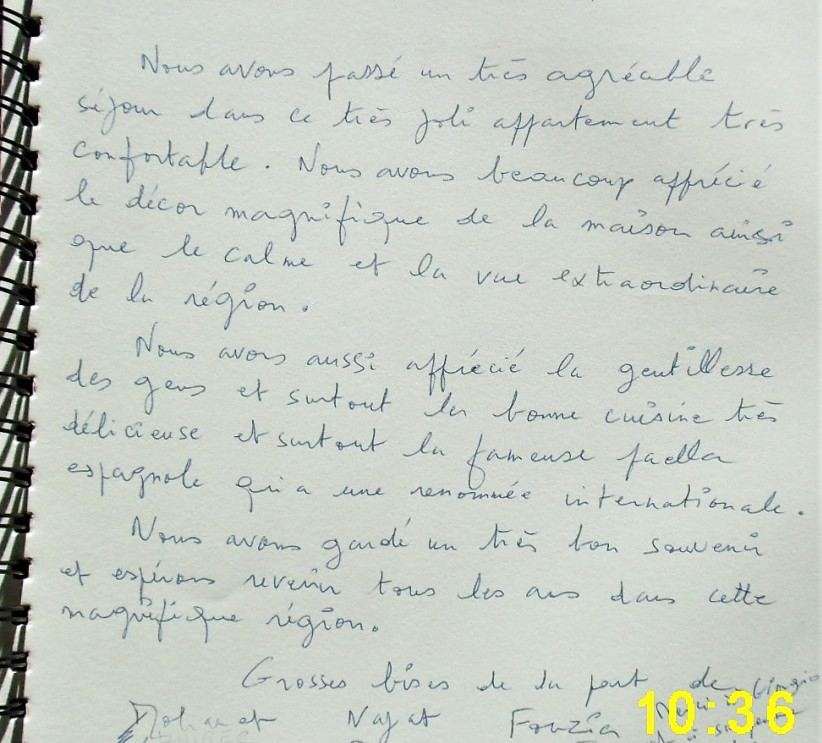 Nous avons passé un très agréable
séjour dans ce très joli appartement très
confortable. Nous avons beaucoup apprécié
le décor magnifique de la maison ainsi
que le calme et la vue extraordinaire
de la région.
Nous avons aussi apprécié la gentillesse
des gens et surtout la bonne cuisine très
délicieuse et surtout la fameuse paella
espagnole qui a une renommée internationale.
Nous avons gardé un très bon souvenir
et espérons revenir tous les ans dans cette
magnifique région.
Grosses bises de la part de Giorgio
Najat Fouzia
10:36